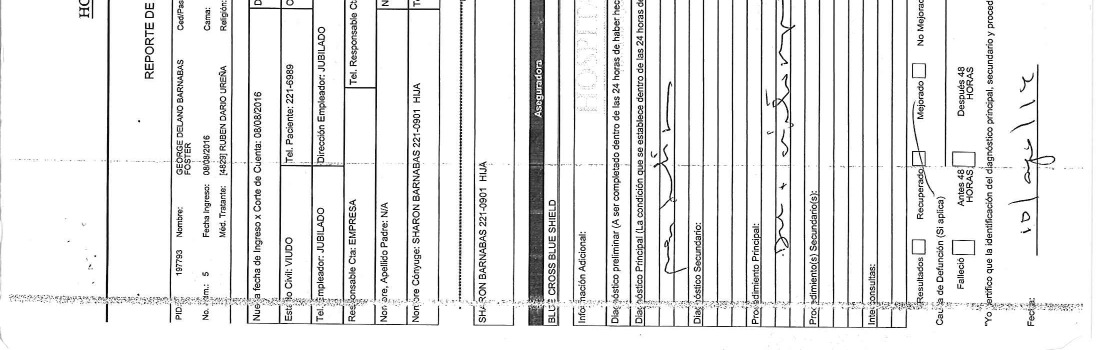 HO
REPORTE DE
PID: 197793 Nombre: GEORGE DELANO BARNABAS Ced/Pas
FOSTER
5 Fecha Ingreso: 08/08/2016 Cama:
Méd. Tratante: [4829] RUBEN DARIO UREÑA Religión:
Nueva fecha de Ingreso x Corte de Cuenta: 08/08/2016 D
Estado Civil: VIUDO Tel. Paciente: 221-6989 C
Tel. Empleador: JUBILADO Dirección Empleador: JUBILADO
Responsable Cta: EMPRESA Tel. Responsable Cta:
Nombre, Apellido Padre: N/A N
Nombre Cónyuge: SHARON BARNABAS 221-0901 HIJA Te
SHARON BARNABAS 221-0901 HIJA
Aseguradora
BLUE CROSS BLUE SHIELD
HOSPIT
Información Adicional:
Diagnóstico preliminar (A ser completado dentro de las 24 horas de haber hec
Diagnóstico Principal (La condición que se establece dentro de las 24 horas de
Diagnóstico Secundario:
Procedimiento Principal:
Procedimiento(s) Secundario(s):
Interconsultas:
Resultados Recuperado Mejorado No Mejorad
Causa de Defunción (Si aplica)
Falleció Antes 48 HORAS Después 48 HORAS
"Yo certifico que la identificación del diagnóstico principal, secundario y proced
Fecha: